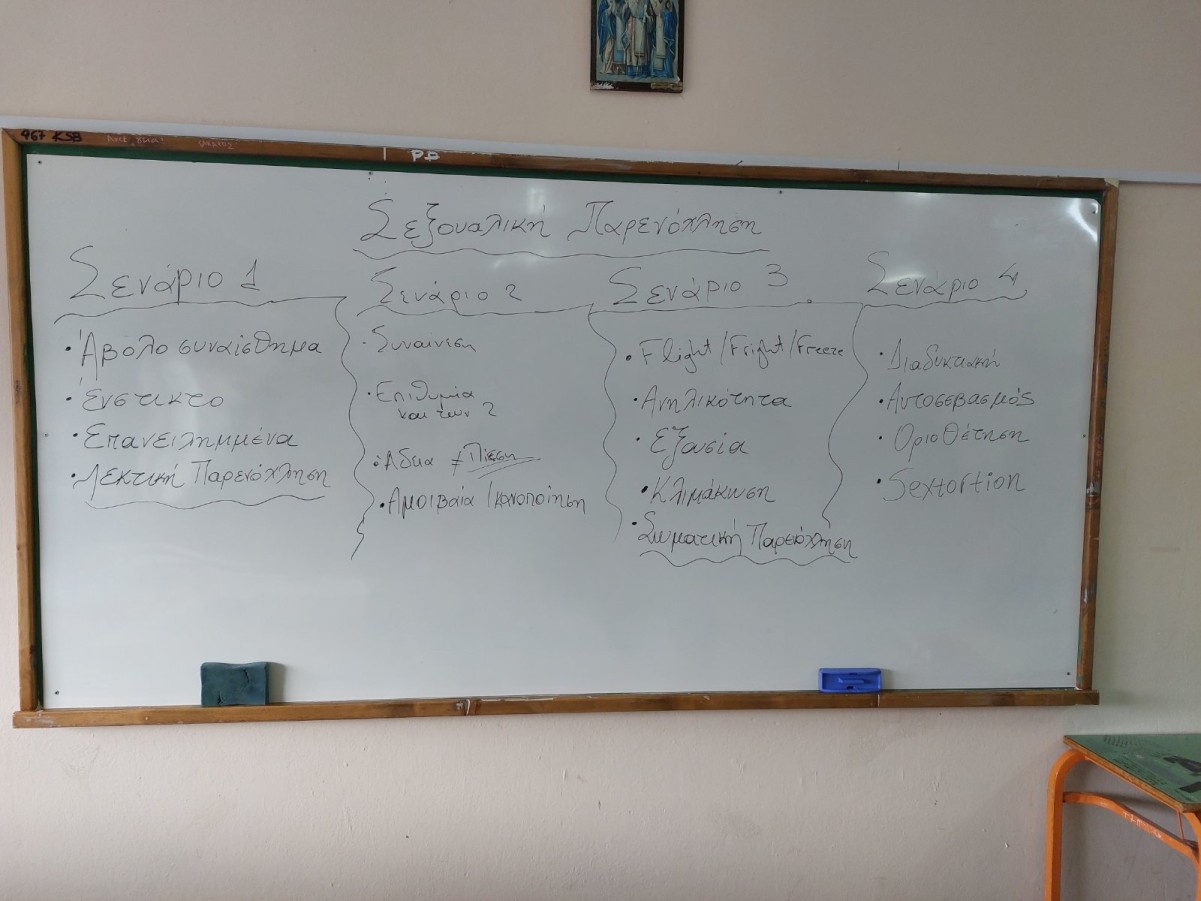 467 KSB
P.P
Σεξουαλική Παρενόχληση
Σενάριο 1
· Άβολο συναίσθημα
· Ένστικτο
· Επανειλημμένα
· Λεκτική Παρενόχληση
Σενάριο 2
· Συναίνεση
· Επιθυμία
και των 2
· Άδεια ≠ Πίεση
· Αμοιβαία Ικανοποίηση
Σενάριο 3
· Flight/Fright/Freeze
· Ανηλικότητα
· Εξουσία
· Κλιμάκωση
· Σωματική Παρενόχληση
Σενάριο 4
· Διαδυκτιακή
· Αυτοσεβασμός
· Οριοθέτηση
· Sextortion